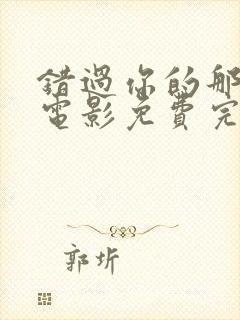 錯過你的那
電影免費完
郭圻